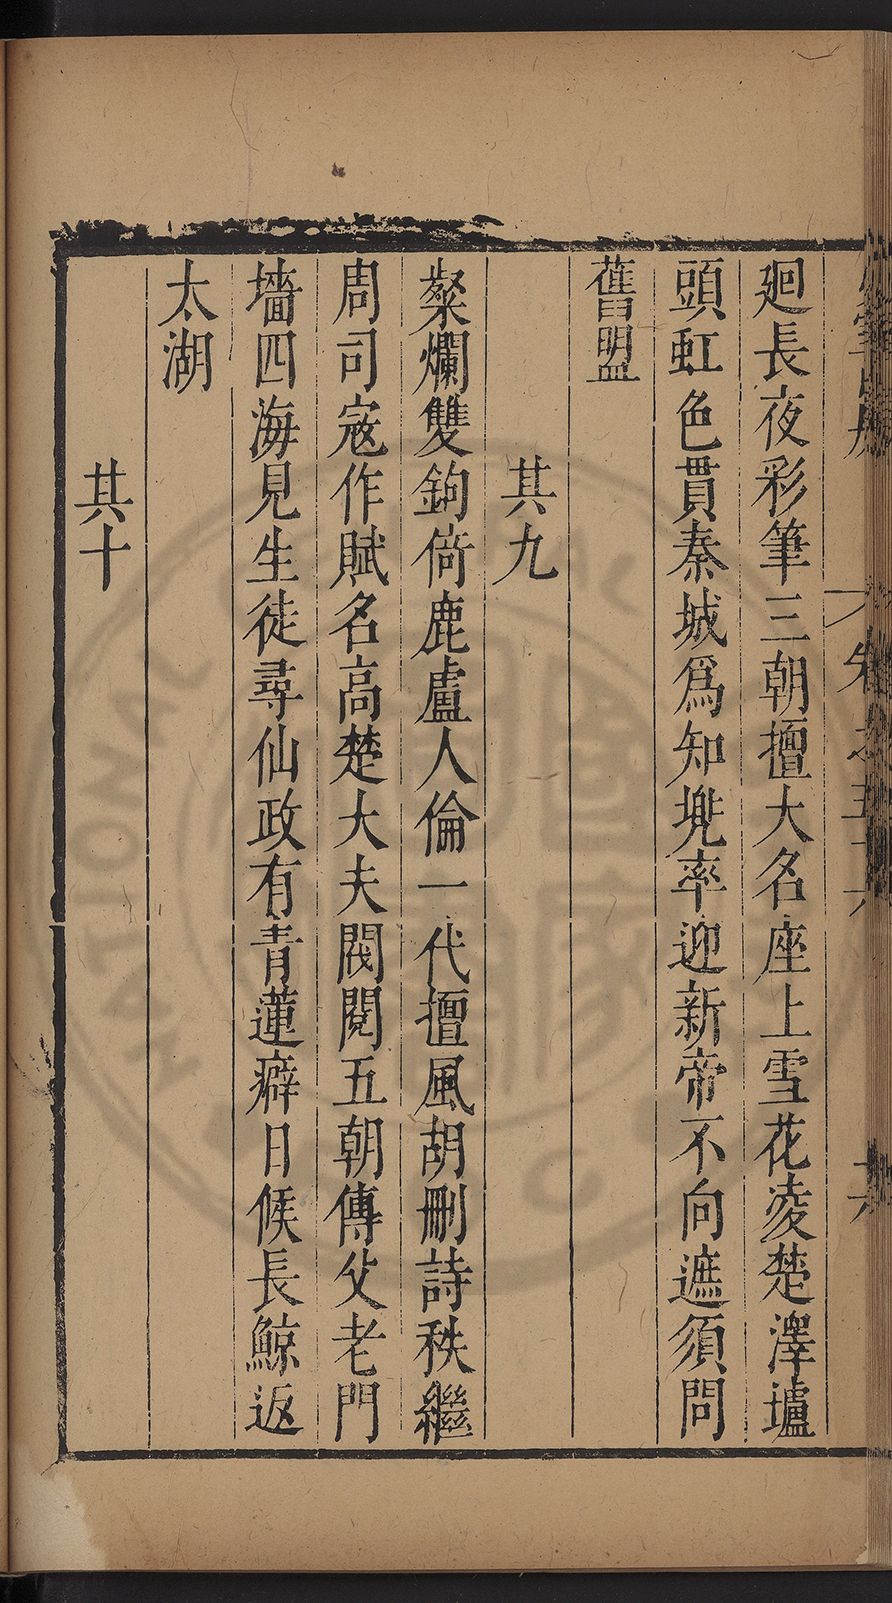 廻長夜彩筆三朝擅大名座上雪花凌楚澤壚
頭虹色貫秦城爲知兠率迎新帝不向遮須問
舊盟
其九
粲爛雙鉤倚鹿盧人倫一代擅風胡刪詩秩繼
周司寇作賦名高楚大夫閥閱五朝傳父老門
墻四海見生徒尋仙政有青蓮癖日候長鯨返
太湖
其十